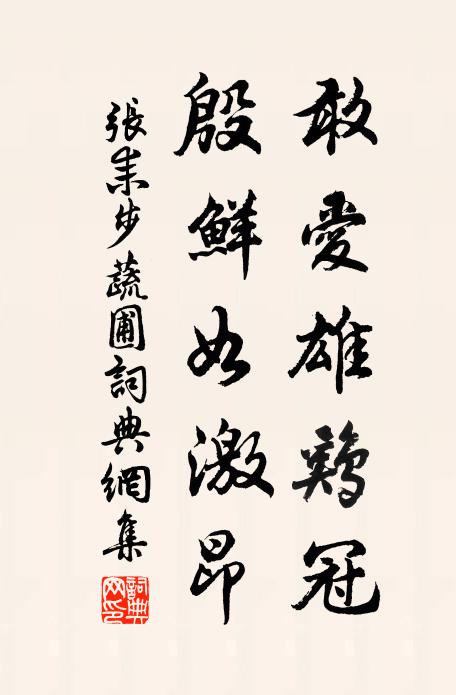 敢愛雄鷄冠
殷鮮如激昂
張耒步蔬圃詞典網集
詞典網印